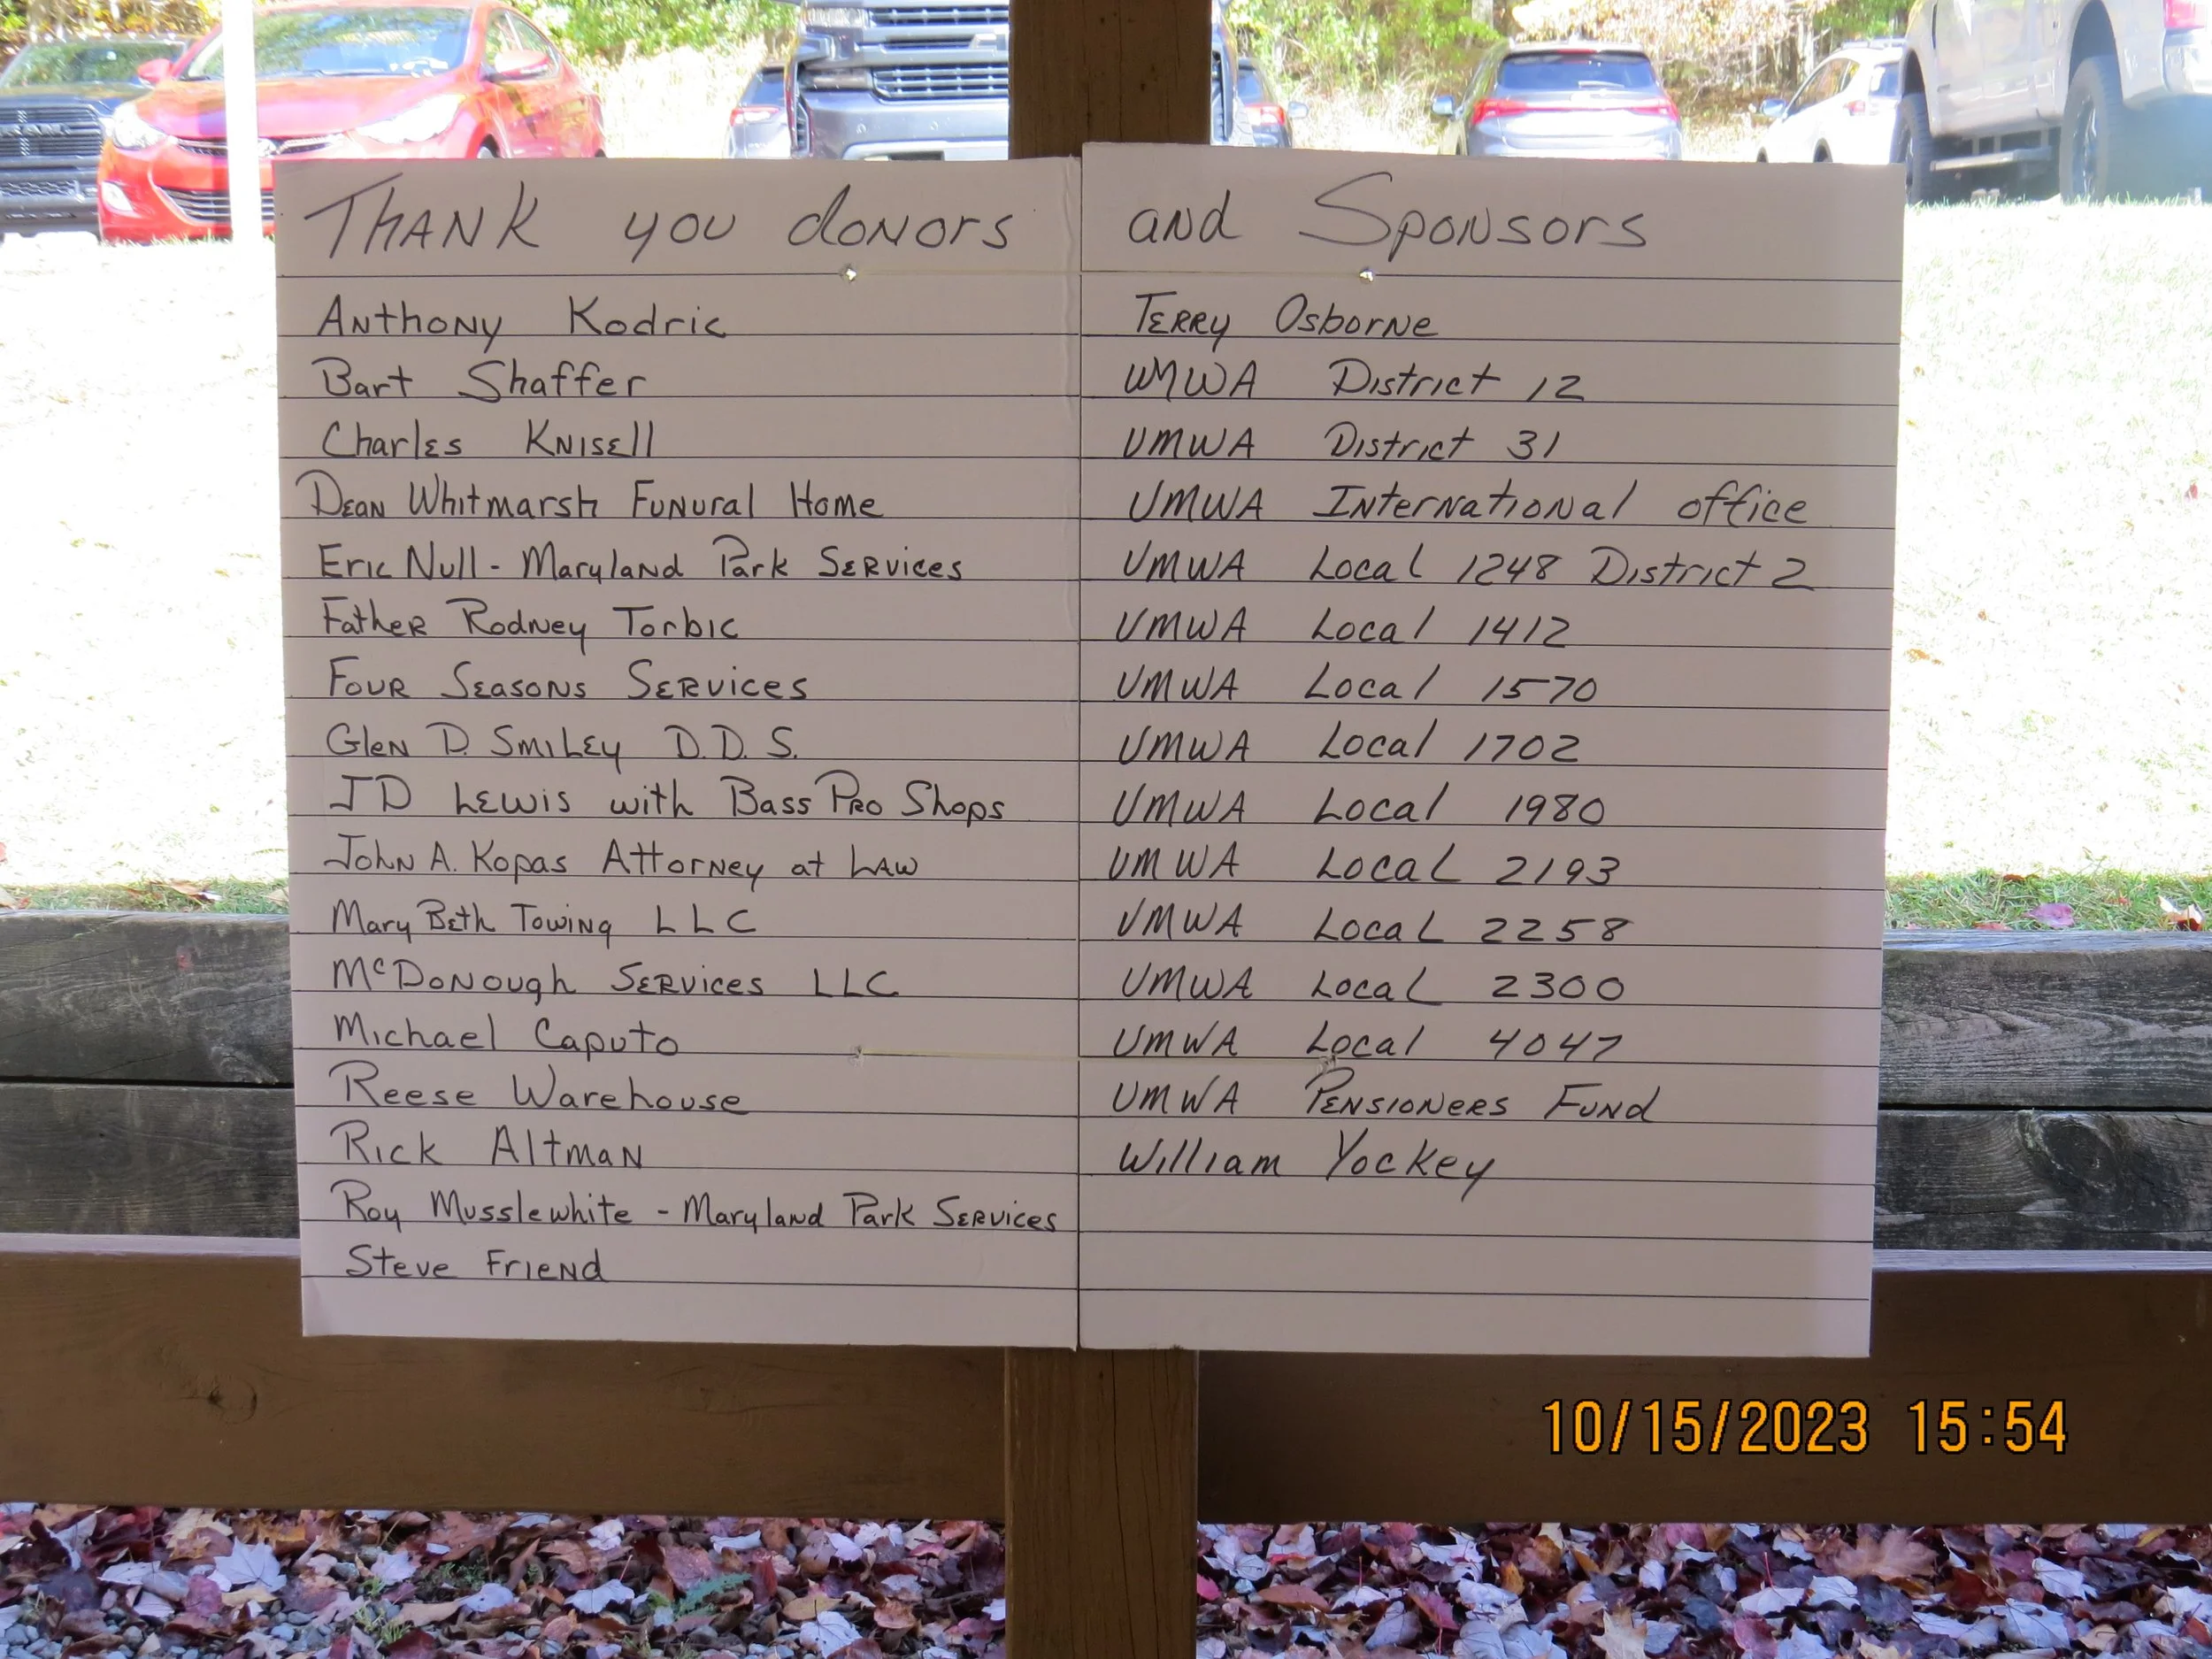 Thank you donors and Sponsors
Anthony Kodric
Bart Shaffer
Charles Knisell
Dean Whitmarsh Funural Home
Eric Null - Maryland Park Services
Father Rodney Torbic
Four Seasons Services
Glen D. Smiley D.D.S.
JD Lewis with Bass Pro Shops
John A. Kopas Attorney at Law
Mary Beth Towing LLC
McDonough Services LLC
Michael Caputo
Reese Warehouse
Rick Altman
Roy Musslewhite - Maryland Park Services
Steve Friend
Terry Osborne
UMWA District 12
UMWA District 31
UMWA International office
UMWA Local 1248 District 2
UMWA Local 1412
UMWA Local 1570
UMWA Local 1702
UMWA Local 1980
UMWA Local 2193
UMWA Local 2258
UMWA Local 2300
UMWA Local 4047
UMWA Pensioners Fund
William Yockey
10/15/2023 15:54